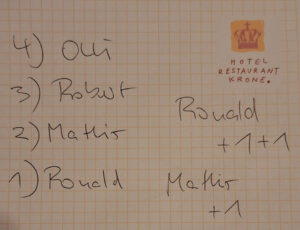 4) Olli
3) Robert
2) Mathis
1) Ronald
HOTEL
RESTAURANT
KRONE.
Ronald
+1+1
Mathis
+1